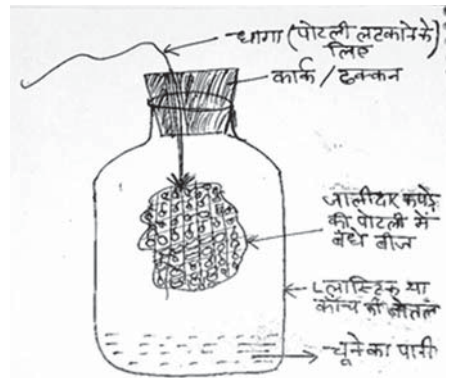 धागा (पोटली लटकाने के)
लिए
कार्क / ढक्कन
जालीदार कपड़े
की पोटली में
बंधे बीज
प्लास्टिक या
काँच की बोतल
चूने का पानी